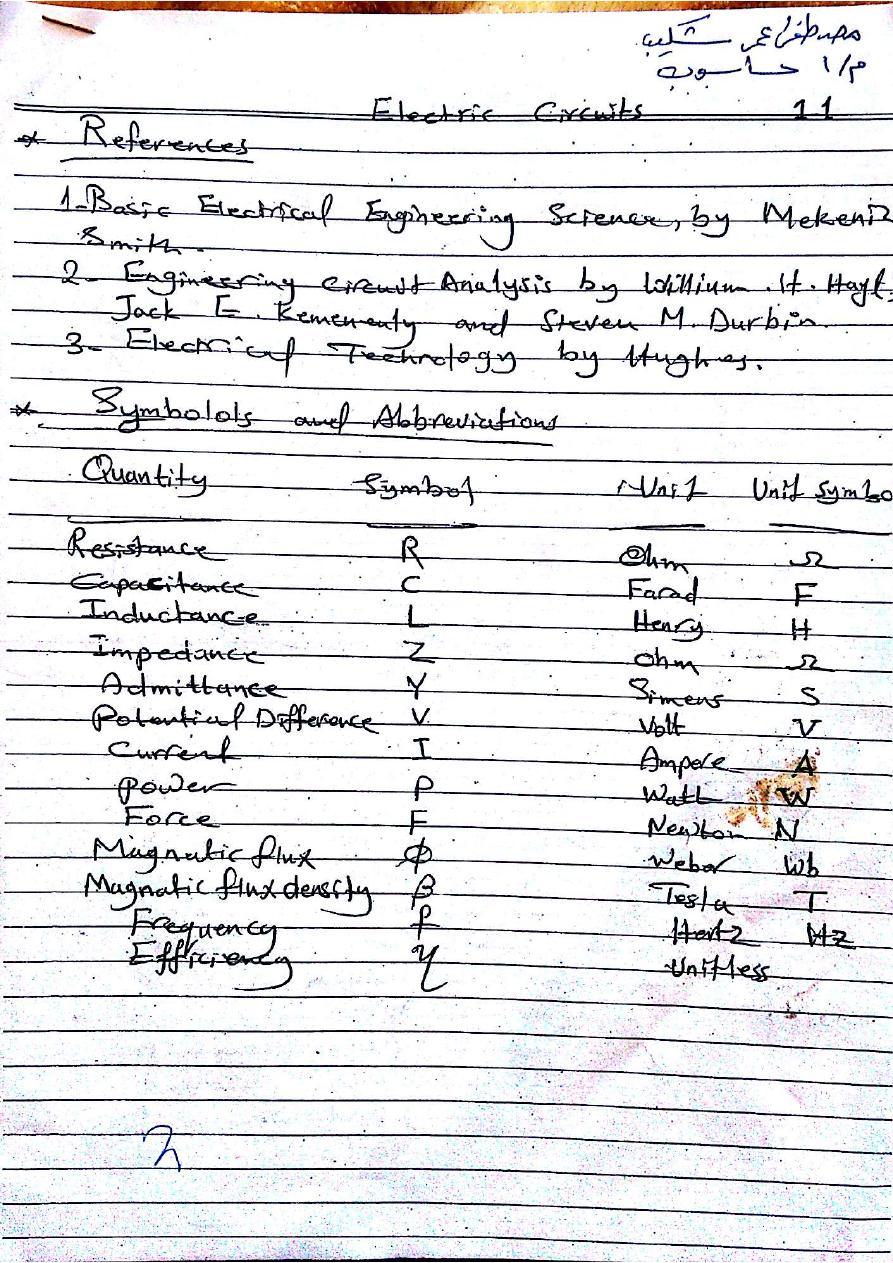 مصطفى عمر شكيب
م/1 حاسوبة
Electric Circuits 11
* References
1-Basic Electrical Engineering Science, by Mekeniz
Smith.
2- Engineering circuit Analysis by Willium .H. Hayt.
Jack E. Kemenenly and Steven M. Durbin.
3- Electrical Technology by Hughes.
* Symbolols and Abbreviations
Quantity Symbol Unit Unit Symbo
Resistance R Ohm Ω
Capacitance C Farad F
Inductance L Henry H
Impedance Z Ohm Ω
Admittance Y Simens S
Potential Difference V Volt V
Current I Ampere A
Power P Watt W
Force F Newton N
Magnatic flux ϕ Weber Wb
Magnatic flux density β Tesla T
Frequency f Hertz Hz
Efficiency η Unitless